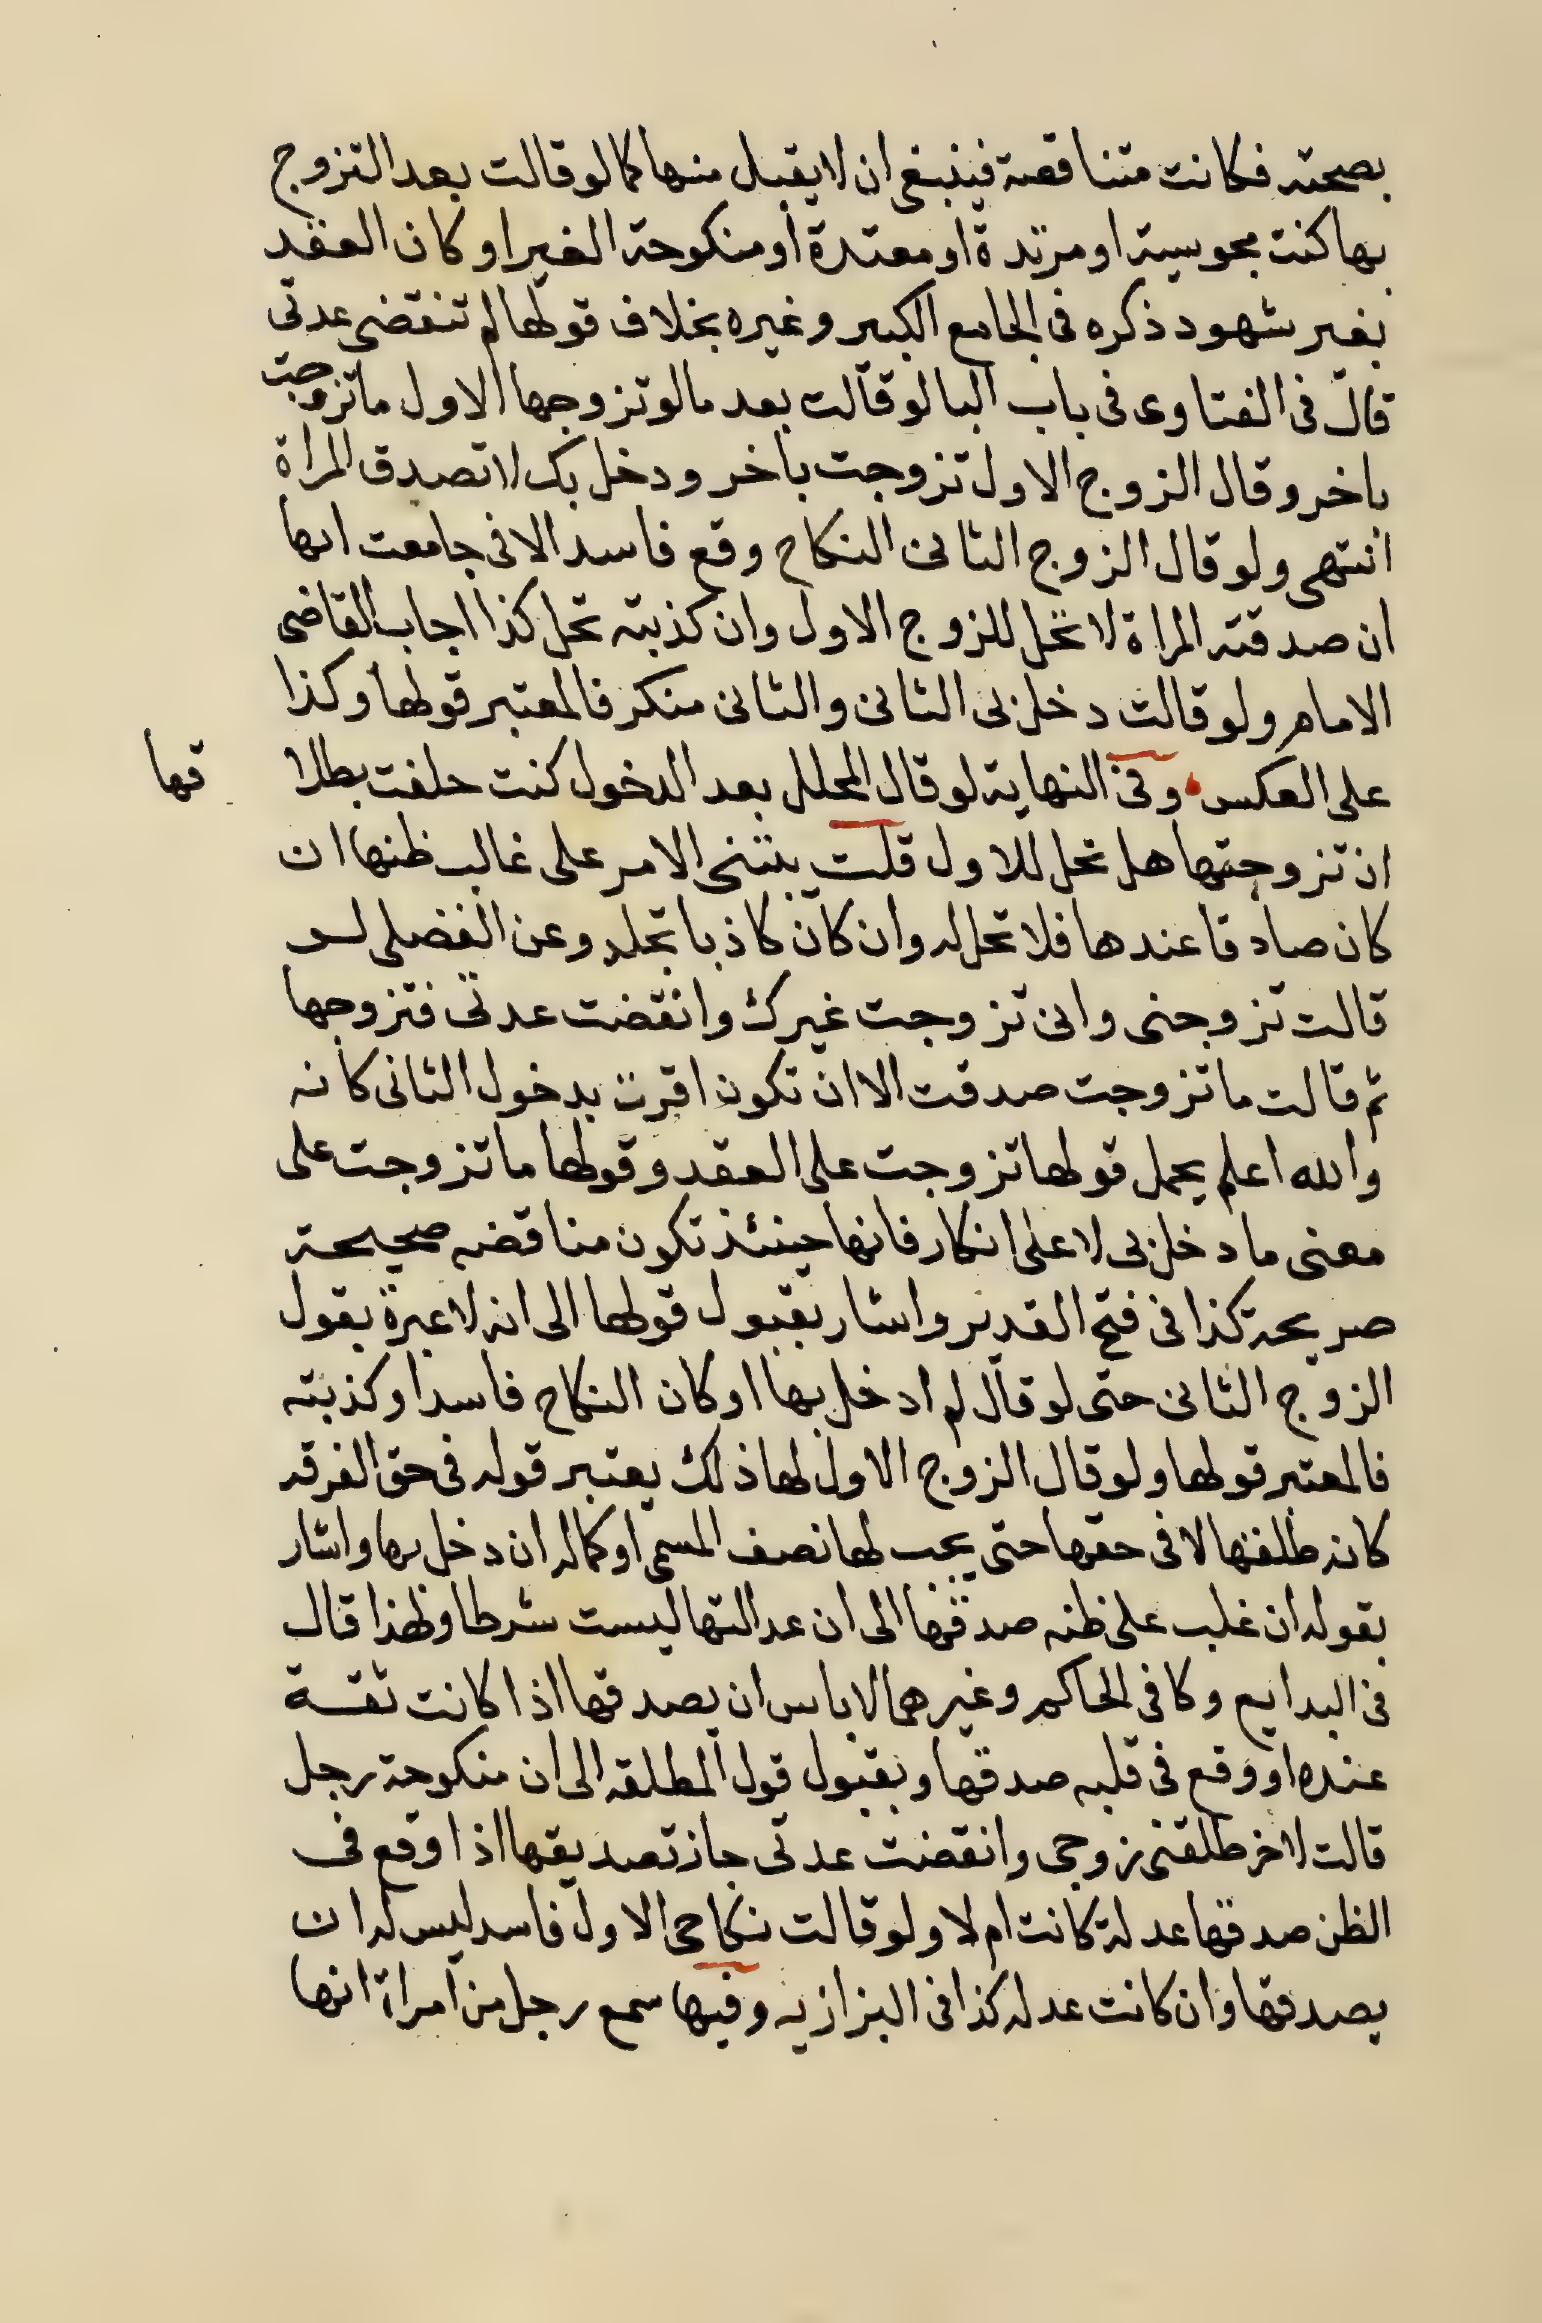 بصحته فكانت متناقضة فينبغي ان لا يقبل منها كما لو قالت بعد التزوج
بها كنت مجوسية او مرتدة او معتدة او منكوحة الغير او كان العقد
بغير شهود ذكره في الجامع الكبير وغيره بخلاف قولها لم تنقضي عدتي
قال في الفتاوى في باب البا لو قالت بعد ما لو تزوجها الاول ما تزوجت
باخر وقال الزوج الاول تزوجت باخر ودخل بك لا تصدق المراة
انتهى ولو قال الزوج الثاني النكاح وقع فاسدا لاني جامعت امها
ان صدقته المراة لا تحل للزوج الاول وان كذبته تحل كذا اجاب القاضي
الامام ولو قالت دخل بي الثاني والثاني منكر فالمعتبر قولها وكذا
على العكس وفي النهاية لو قال المحلل بعد الدخول كنت حلفت بطلا
قها
ان تزوجتها هل تحل للاول قلت يبتنى الامر على غالب ظنها ان
كان صادقا عندها فلا تحل له وان كان كاذبا تحل له وعن الفضلي لو
قالت تزوجني واني تزوجت غيرك وانقضت عدتي فتزوجها
ثم قالت ما تزوجت صدقت الا ان تكون اقرت بدخول الثاني كانه
والله اعلم يحمل قولها تزوجت على العقد وقولها ما تزوجت على
معنى ما دخل بي لا على انكار فانها حينئذ تكون مناقضه صحيحة
صريحة كذا في فتح القدير واشار بقبول قولها الى انه لا عبرة بقول
الزوج الثاني حتى لو قال لم ادخل بها او كان النكاح فاسدا وكذبته
فالمعتبر قولها ولو قال الزوج الاول لها ذلك يعتبر قوله في حق الفرقه
كانه طلقها لا في حقها حتى يجب لها نصف المسمى او كماله ان دخل بها واشار
بقوله ان غلب على ظنه صدقها الى ان عدالتها ليست شرطا ولهذا قال
في البدايع وكافي الحاكم وغيرهما لا باس ان يصدقها اذا كانت ثقة
عنده او وقع في قلبه صدقها وبقبول قول المطلقه الى ان منكوحة رجل
قالت لاخر طلقني زوجي وانقضت عدتي جاز تصديقها اذا وقع في
الظن صدقها عدلة كانت ام لا ولو قالت نكاحي الاول فاسد ليس له ان
يصدقها وان كانت عدله كذا في البزازيه وفيها سمع رجل من امراة انها